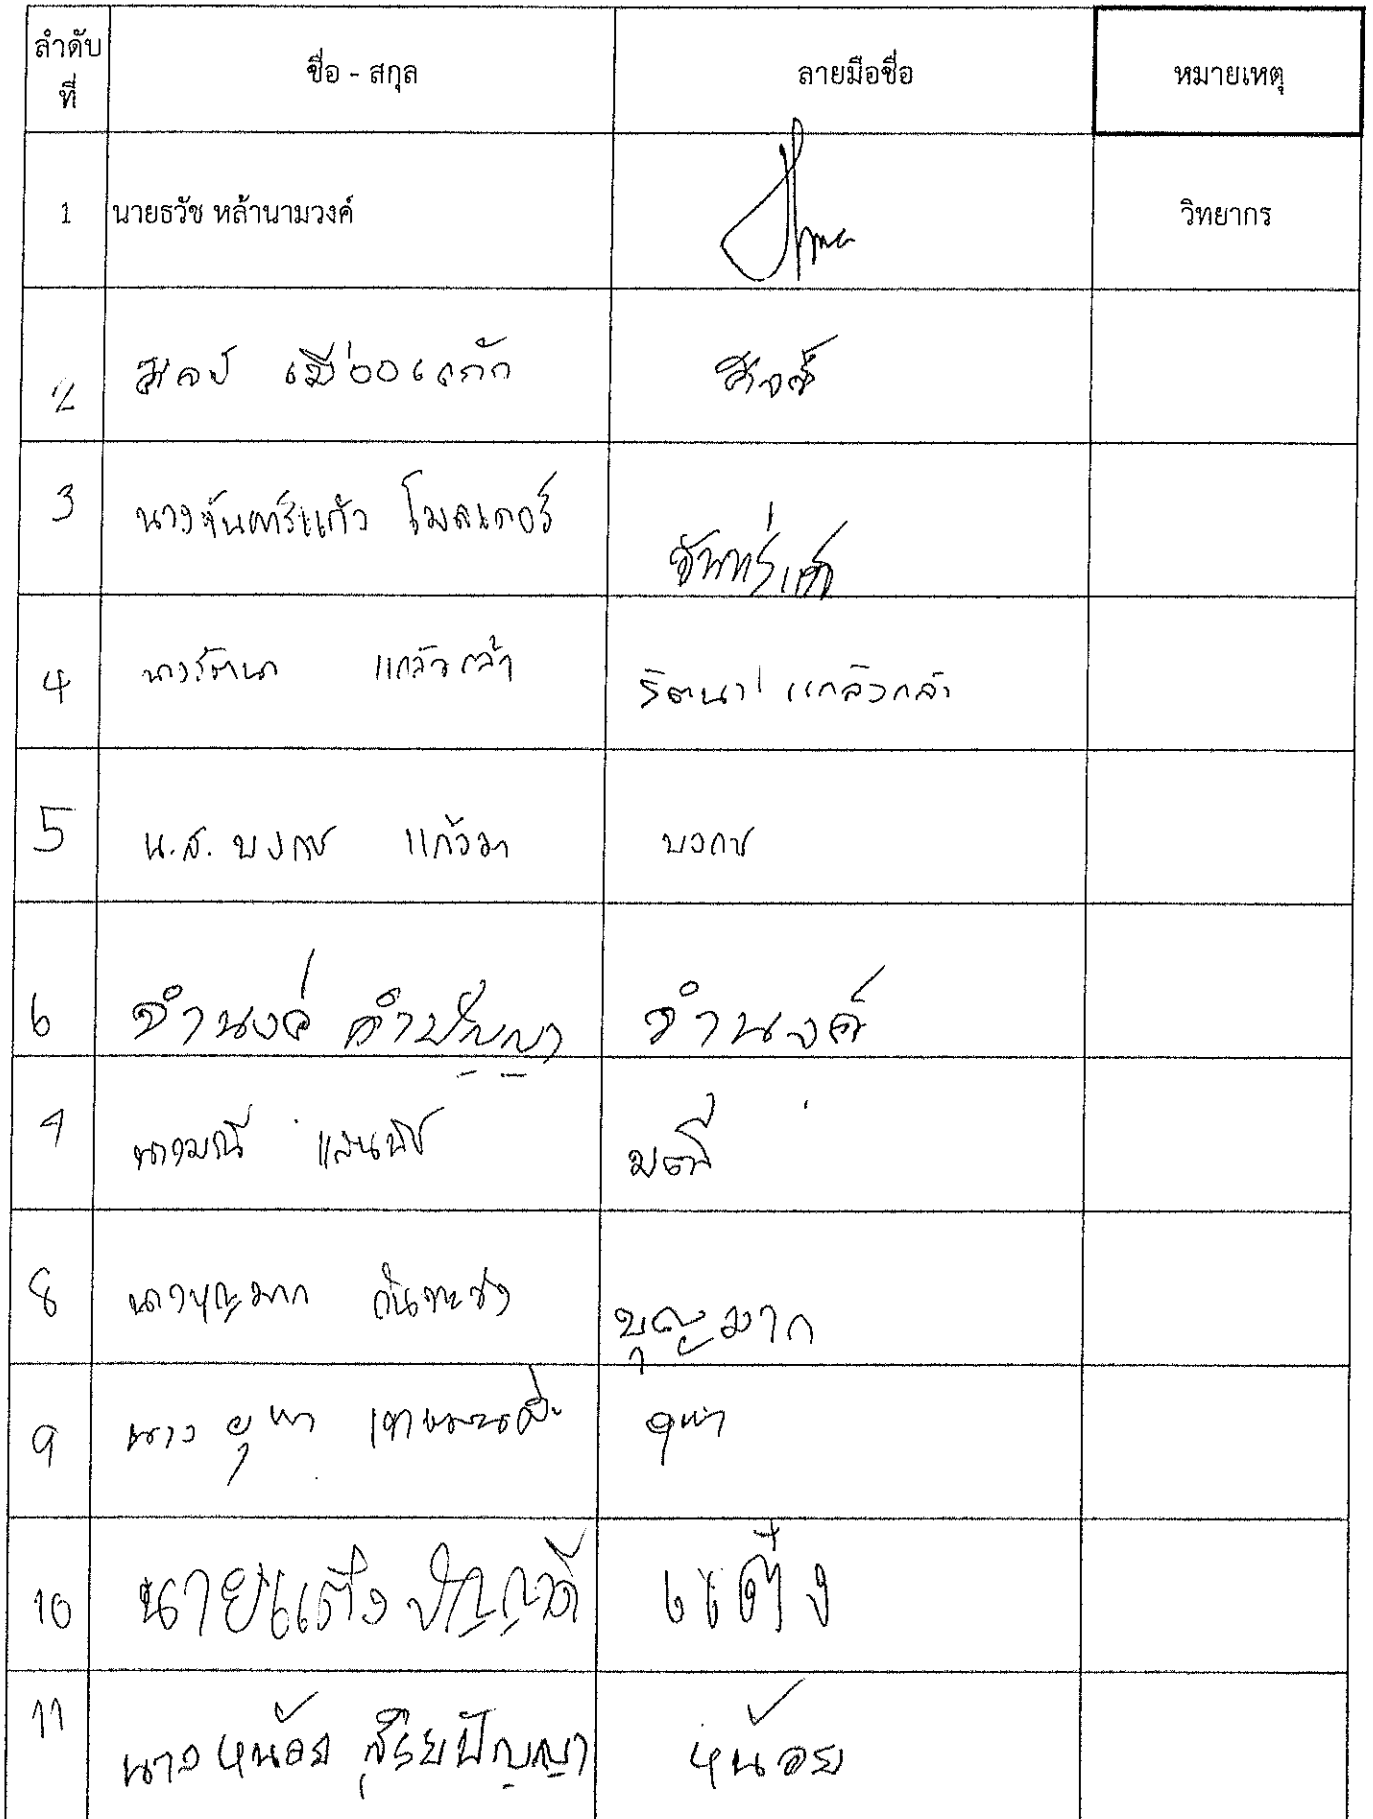 ลำดับที่ ชื่อ - สกุล ลายมือชื่อ หมายเหตุ
1 นายธวัช หล้านามวงค์ วิทยากร
2
3 นางจันทร์แก้ว โมลเกอร์ จันทร์แก้ว
4 นางรัตนา แกล้วกล้า รัตนา แกล้วกล้า
5 น.ส. บงกช แก้วมา บงกช
6 จำนงค์ คำปัญญา จำนงค์
7 นางมณี แสนพิช มณี
8 นางบุญมาก กันทะชัง บุญมาก
9 นาง
10 นายแต๋ง ปัญญาดี
11 นางหน้อย สุริยปัญญา หน้อย